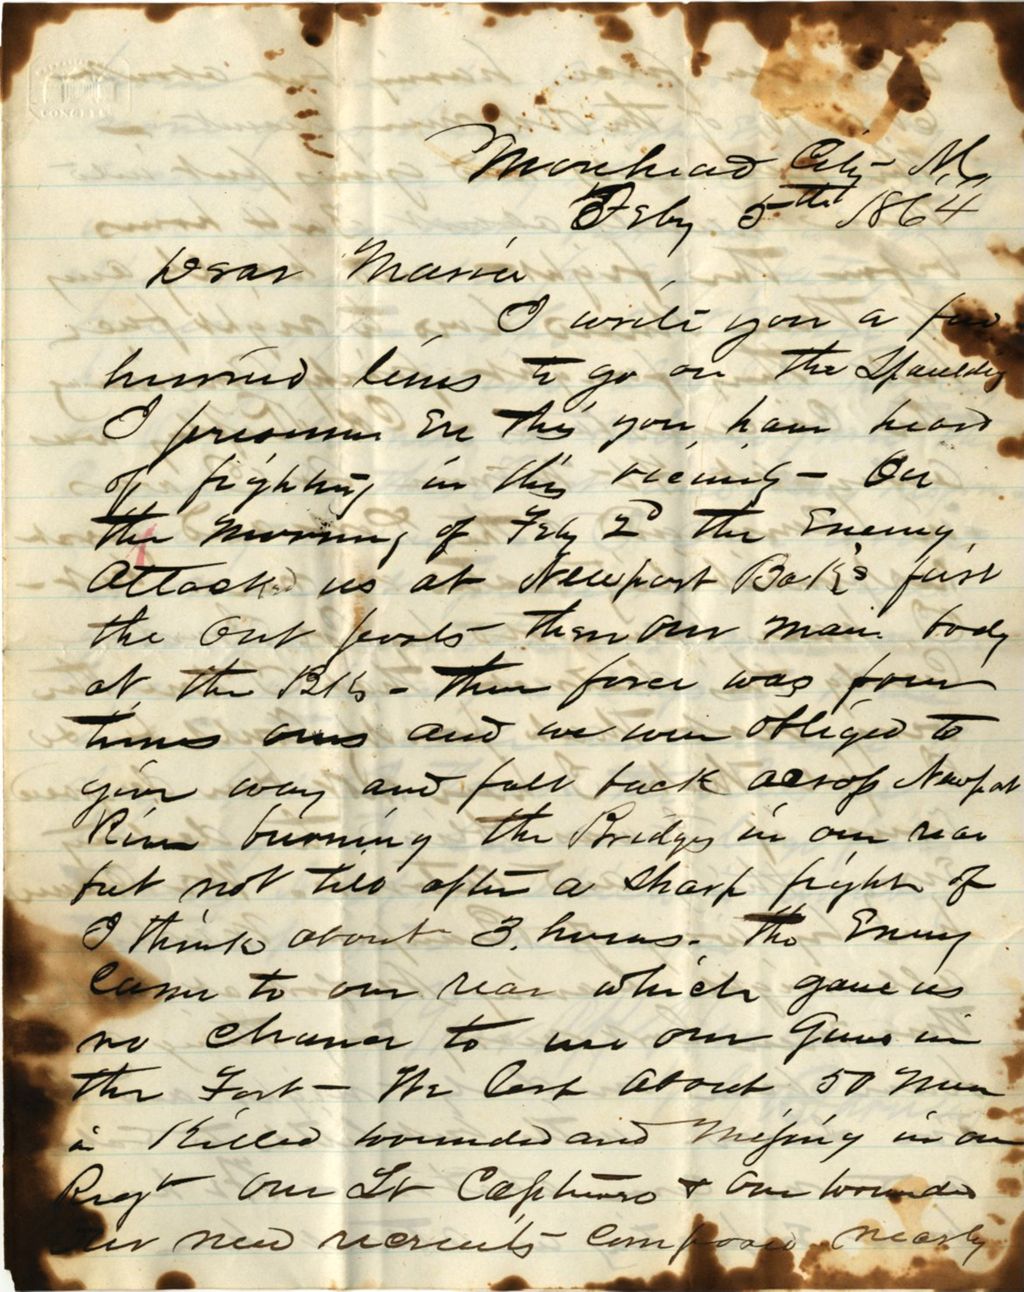 CONGRESS
Morehead City N.C.
Feby 5th 1864
Dear Maria
I write you a few
hurried lines to go on the Spaulding
I presume Ere this you have heard
of fighting in this vicinity - On
the Morning of Feby 2d the Enemy
Attacked us at Newport Bak's first
the Out posts then our main body
at the Bks - their force was four
times ours and we were obliged to
give way and fall back across Newport
River burning the Bridges in our rear
but not till after a sharp fight of
I think about 3 hours. the Enemy
Came to our rear which gave us
no chance to use our Guns in
the Fort - We lost About 50 Men
in Killed wounded and Missing in our
Regt One Lt Captured & One wounded
Our new recruits composed nearly